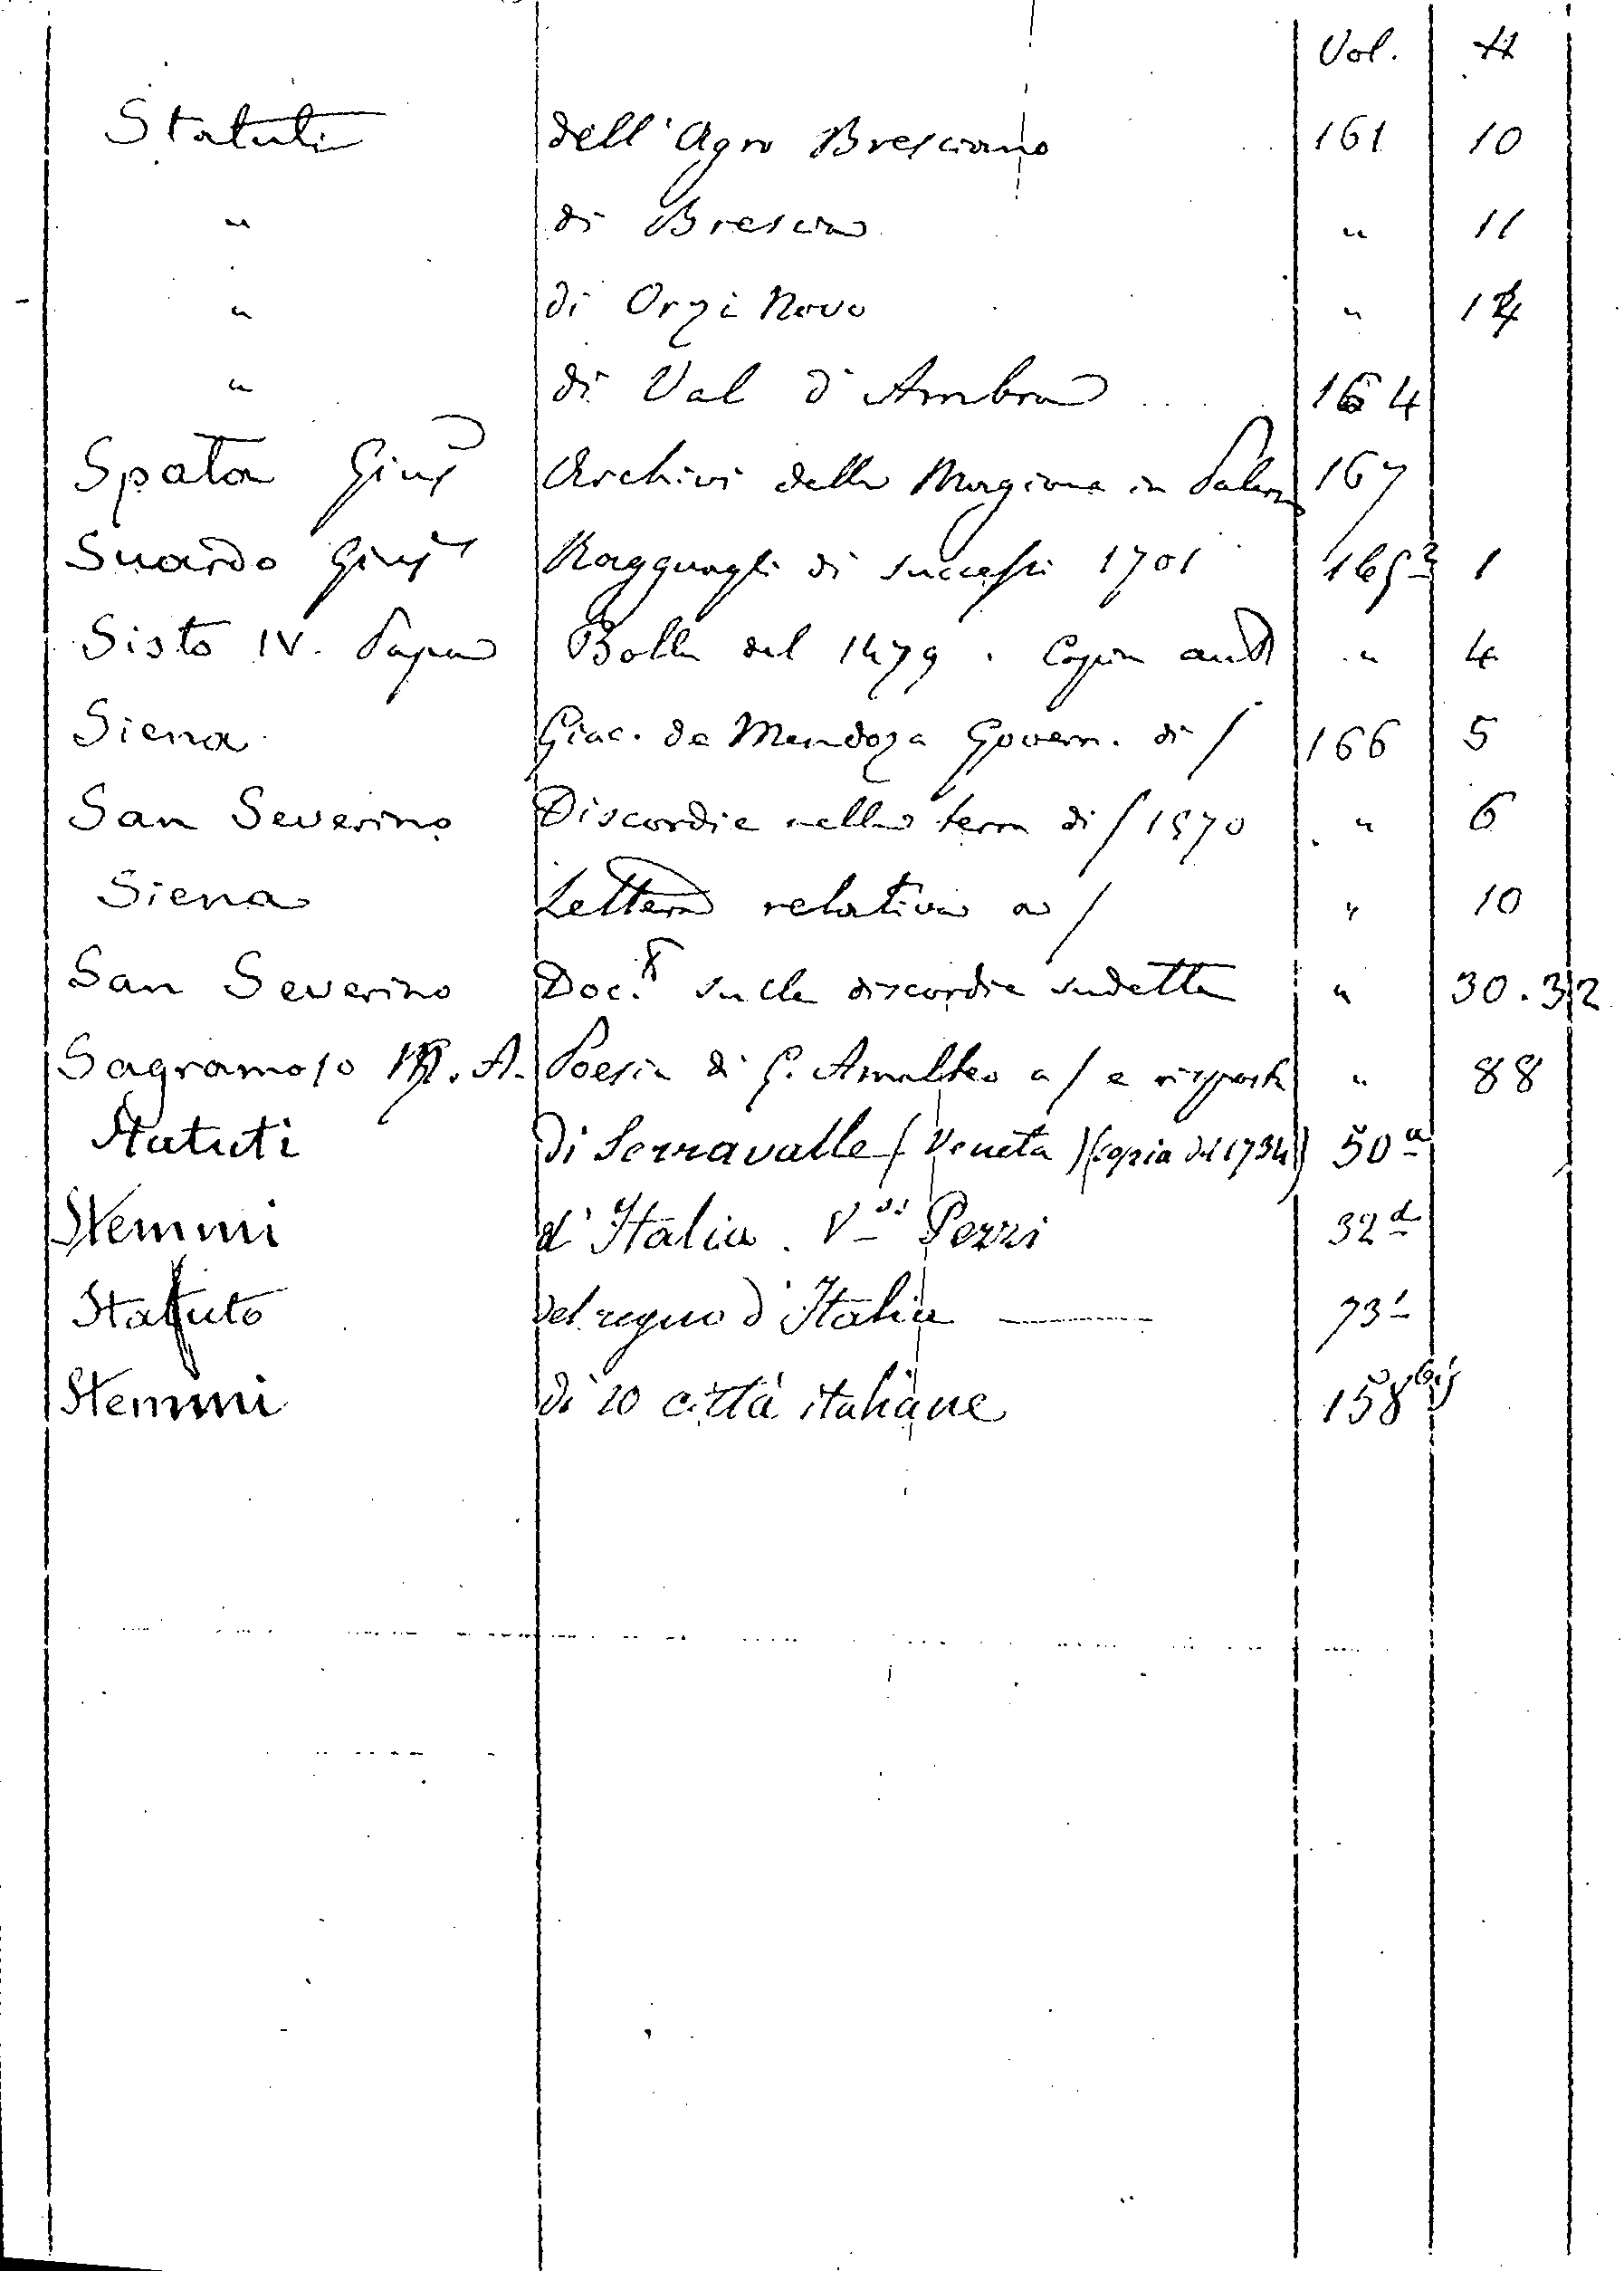 Vol. #
Statuti dell'Agro Bresciano 161 10
" di Brescia " 11
" di Orzi Novo "
" di Val d'Ambra 164
Spata Gius Archivi della Magione in Palerm 167
Suardo Gius Ragguagli di successi 1701 165 1
Sisto IV. Papa Bolla del 1479. Copia aut " 4
Siena Giac. de Mendoza Govern. di S 166 5
San Severino Discordie nella terra di S 1570 " 6
Siena Lettera relativa a S " 10
San Severino Doc. sulle discordie sudette " 30.32
Sagramoso M. A. Poesia di G. Amalteo a S e risposta " 88
Statuti di Serravalle (Veneta) (copia del 1734) 50a
Stemmi d'Italia. Vdi Pezzi 32d
Statuto del regno d'Italia 73
Stemmi di 20 città italiane 158bis